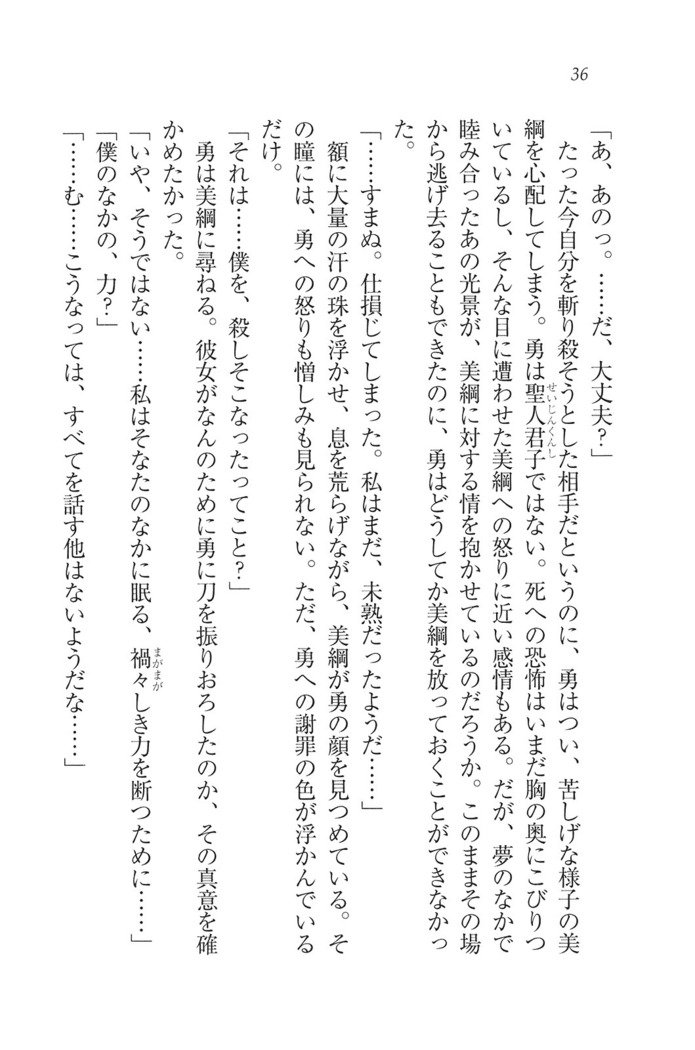 36
「あ、あのっ。……だ、大丈夫？」
　たった今自分を斬り殺そうとした相手だというのに、勇はつい、苦しげな様子の美
綱を心配してしまう。勇は聖人君子ではない。死への恐怖はいまだ胸の奥にこびりつ
せいじんくんし
いているし、そんな目に遭わせた美綱への怒りに近い感情もある。だが、夢のなかで
睦み合ったあの光景が、美綱に対する情を抱かせているのだろうか。このままその場
から逃げ去ることもできたのに、勇はどうしてか美綱を放っておくことができなかっ
た。
「……すまぬ。仕損じてしまった。私はまだ、未熟だったようだ……」
　額に大量の汗の珠を浮かせ、息を荒らげながら、美綱が勇の顔を見つめている。そ
の瞳には、勇への怒りも憎しみも見られない。ただ、勇への謝罪の色が浮かんでいる
だけ。
「それは……僕を、殺しそこなったってこと？」
　勇は美綱に尋ねる。彼女がなんのために勇に刀を振りおろしたのか、その真意を確
かめたかった。
「いや、そうではない……私はそなたのなかに眠る、禍々しき力を断つために……」
まがまが
「僕のなかの、力？」
「……む……こうなっては、すべてを話す他はないようだな……」